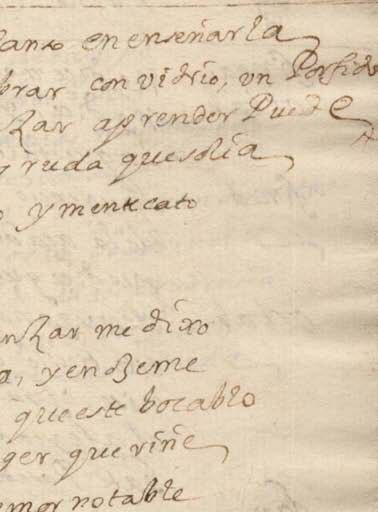 tanto en enseñarla
brar con vidrio, un Porfido
zar aprender Puede
ruda que solia
o y mentecato
nzar me dixo
a, y endeme
que este bocablo
ger que riñe
emor notable